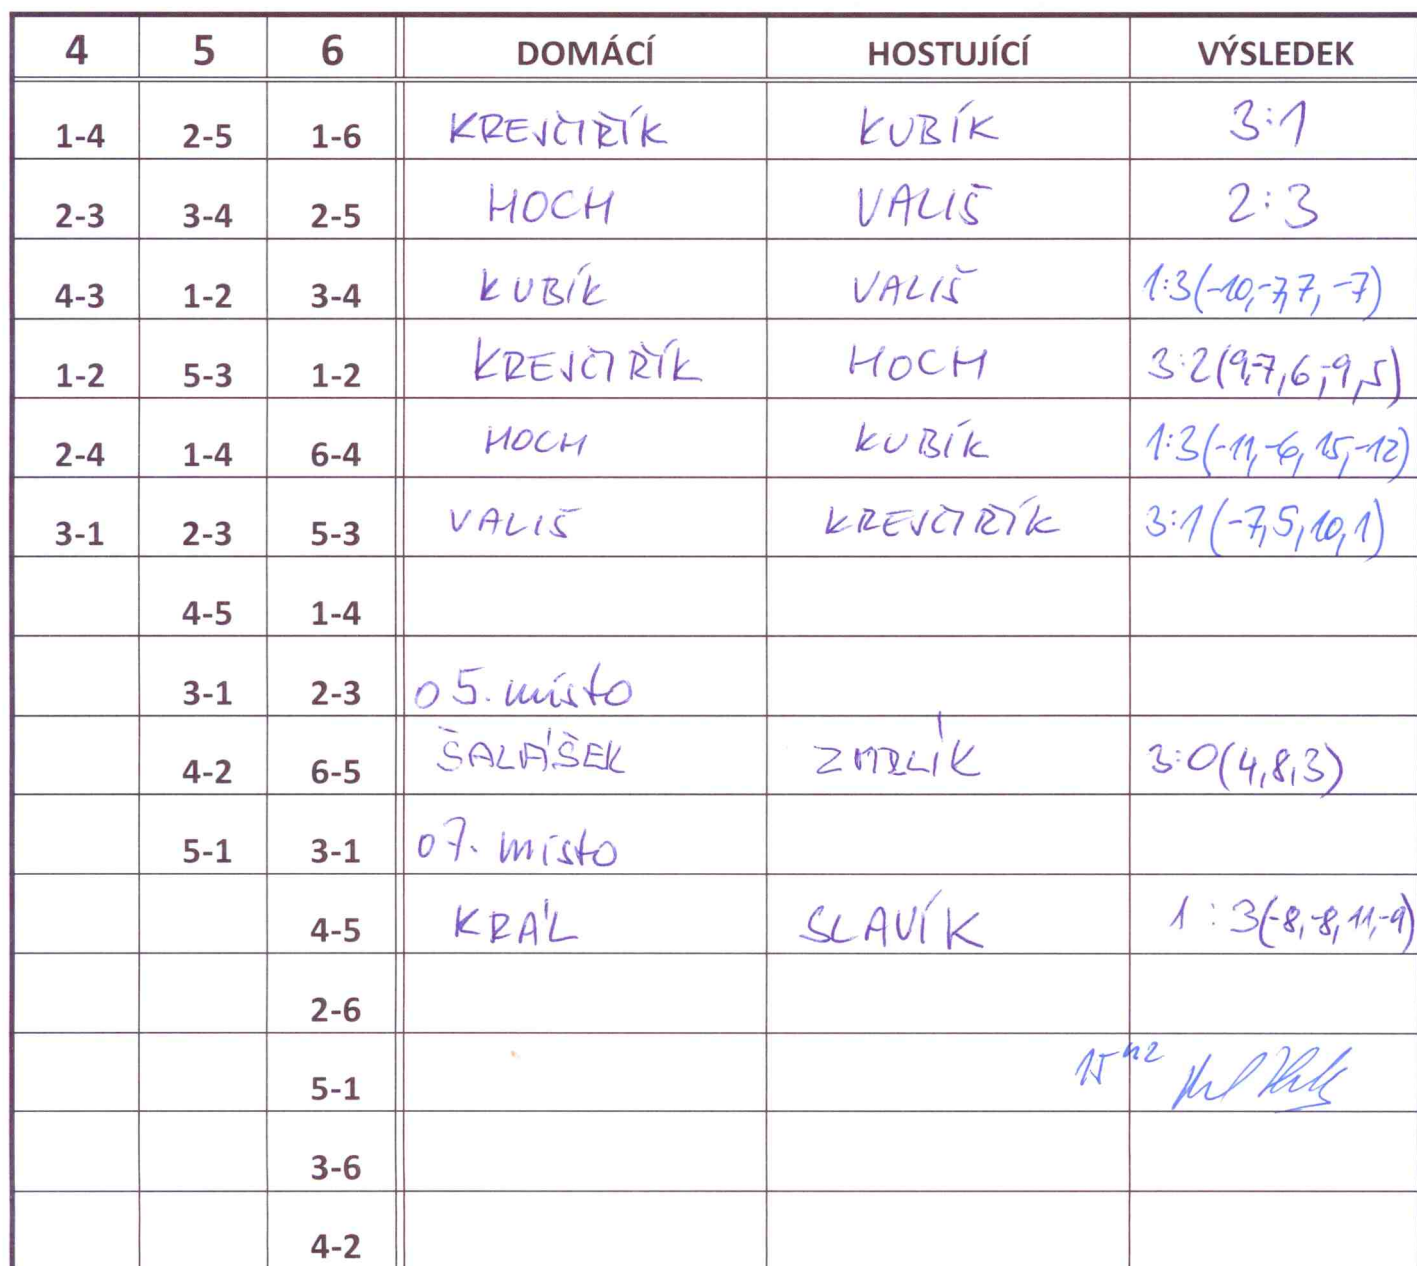 4 5 6 DOMÁCÍ HOSTUJÍCÍ VÝSLEDEK
1-4 2-5 1-6 KREJČIŘÍK KUBÍK 3:1
2-3 3-4 2-5 HOCH VALIŠ 2:3
4-3 1-2 3-4 KUBÍK VALIŠ 1:3(-10,-7,7,-7)
1-2 5-3 1-2 KREJČIŘÍK HOCH 3:2(9,-7,6,-9,5)
2-4 1-4 6-4 HOCH KUBÍK 1:3(-11,-6,15,-12)
3-1 2-3 5-3 VALIŠ KREJČIŘÍK 3:1(-7,5,10,1)
4-5 1-4
3-1 2-3 o 5. místo
4-2 6-5 ŠALÁŠEK ZMRLÍK 3:0(4,8,3)
5-1 3-1 o 7. místo
4-5 KRÁL SLAVÍK 1:3(-8,-8,11,-9)
2-6
5-1 15 42
3-6
4-2